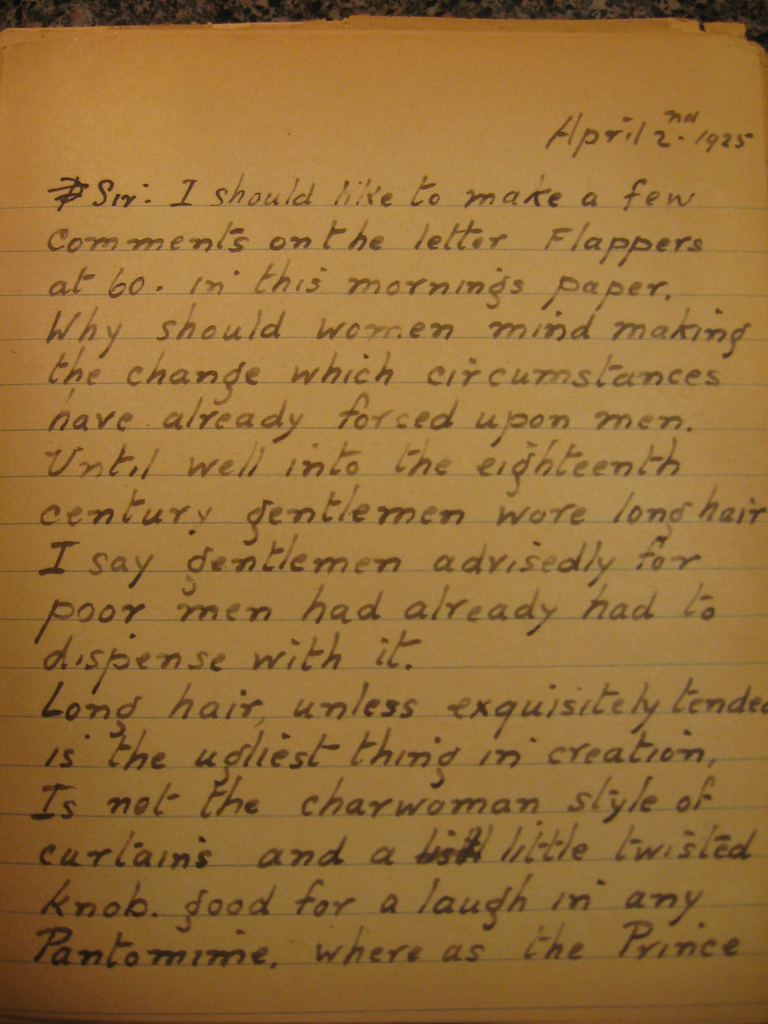 April 2nd. 1925
Sir: I should like to make a few
comments on the letter Flappers
at 60. in this mornings paper.
Why should women mind making
the change which circumstances
have already forced upon men.
Until well into the eighteenth
century gentlemen wore long hair
I say gentlemen advisedly for
poor men had already had to
dispense with it.
Long hair, unless exquisitely tended
is the ugliest thing in creation,
Is not the charwoman style of
curtains and a little twisted
knob. good for a laugh in any
Pantomime. where as the Prince